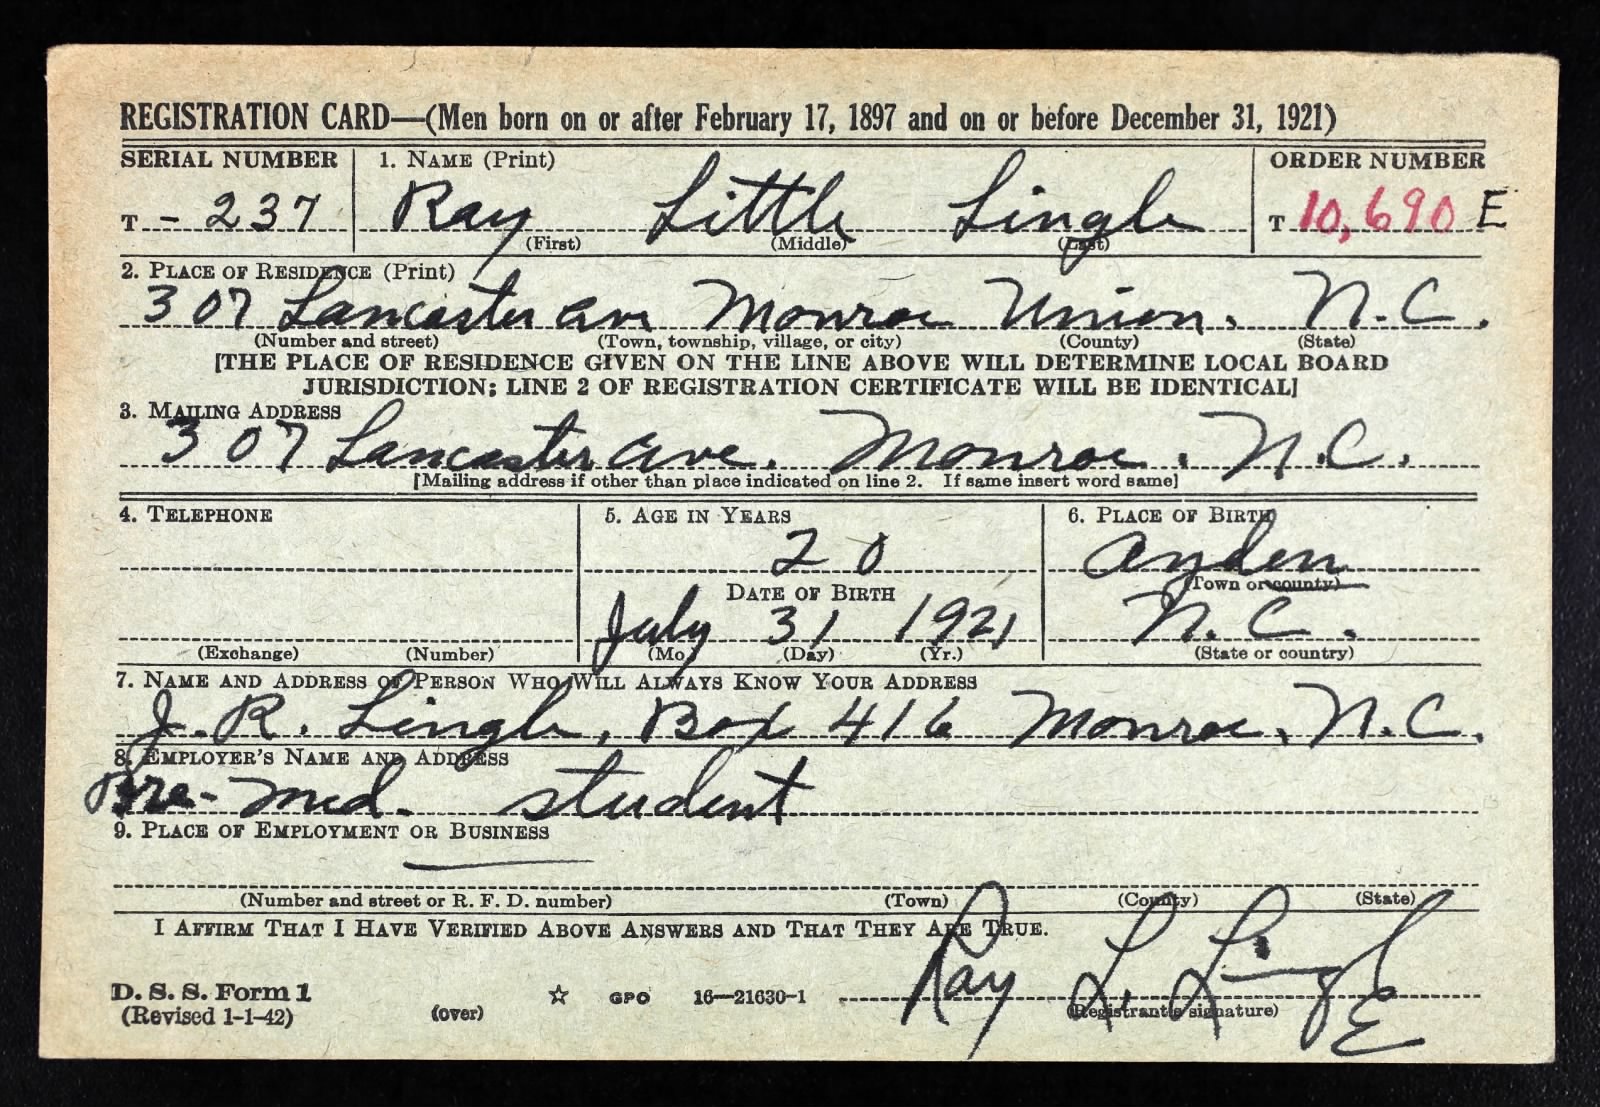 REGISTRATION CARD—(Men born on or after February 17, 1897 and on or before December 31, 1921)
SERIAL NUMBER 1. NAME (Print) ORDER NUMBER
T - 237 Ray Little Lingle T 10,690 E
(First) (Middle) (Last)
2. PLACE OF RESIDENCE (Print)
307 Lancaster Ave Monroe Union. N.C.
(Number and street) (Town, township, village, or city) (County) (State)
[THE PLACE OF RESIDENCE GIVEN ON THE LINE ABOVE WILL DETERMINE LOCAL BOARD
JURISDICTION; LINE 2 OF REGISTRATION CERTIFICATE WILL BE IDENTICAL]
3. MAILING ADDRESS
307 Lancaster Ave. Monroe. N.C.
[Mailing address if other than place indicated on line 2. If same insert word same]
4. TELEPHONE 5. AGE IN YEARS 6. PLACE OF BIRTH
20 Ayden
DATE OF BIRTH (Town or county)
July 31 1921 N. C.
(Exchange) (Number) (Mo.) (Day) (Yr.) (State or country)
7. NAME AND ADDRESS OF PERSON WHO WILL ALWAYS KNOW YOUR ADDRESS
J. R. Lingle, Box 416 Monroe, N.C.
8. EMPLOYER'S NAME AND ADDRESS
Pre-med. student
9. PLACE OF EMPLOYMENT OR BUSINESS
(Number and street or R. F. D. number) (Town) (County) (State)
I AFFIRM THAT I HAVE VERIFIED ABOVE ANSWERS AND THAT THEY ARE TRUE.
Ray L. Lingle
D. S. S. Form 1
(Revised 1-1-42) (over) ☆ GPO 16—21630-1 (Registrant's signature)
E